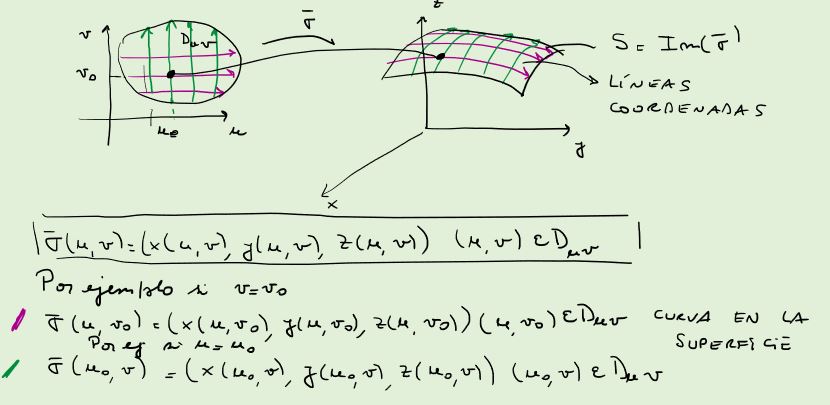 v
D uv
σ̄
z
S = Im(σ̄)
v₀
LÍNEAS
COORDENADAS
u₀
u
y
x
σ̄(u,v) = (x(u,v), y(u,v), z(u,v)) (u,v) ∈ Duv
Por ejemplo si v=v₀
σ̄(u,v₀) = (x(u,v₀), y(u,v₀), z(u,v₀)) (u,v₀) ∈ Duv CURVA EN LA
SUPERFICIE
Por ej si u=u₀
σ̄(u₀,v) = (x(u₀,v), y(u₀,v), z(u₀,v)) (u₀,v) ∈ Duv